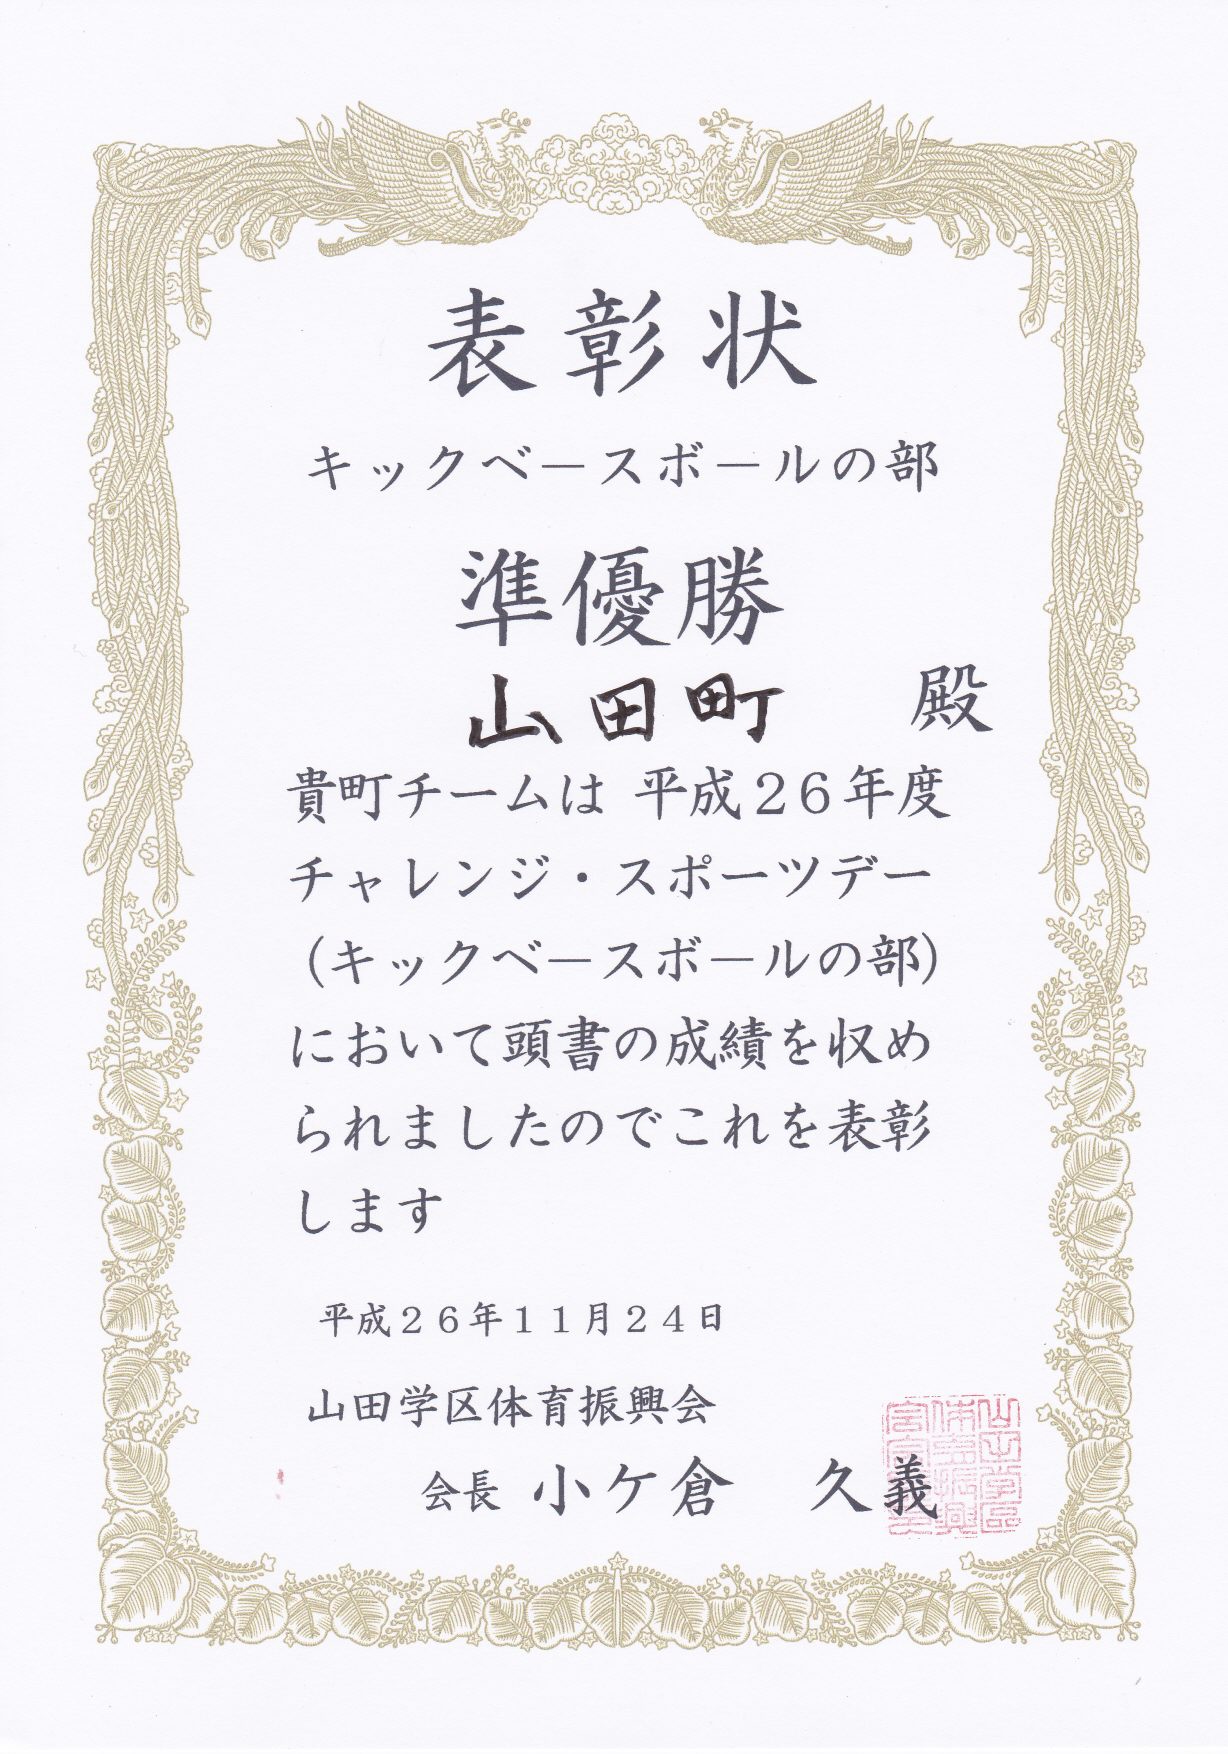 表彰状
キックベースボールの部
準優勝
山田町 殿
貴町チームは 平成26年度
チャレンジ・スポーツデー
(キックベースボールの部)
において頭書の成績を収め
られましたのでこれを表彰
します
平成26年11月24日
山田学区体育振興会
会長 小ケ倉 久義